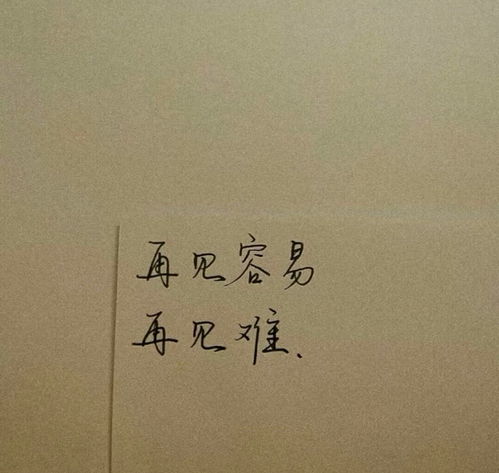 再见容易
再见难、